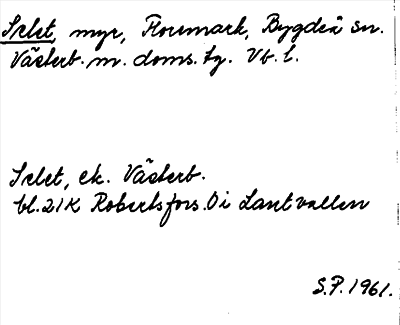 Selet, myr, Flormark, Bygdeå sn.
Västerb. m. doms. tg. Vb. l.
Selet, ek. Västerb.
bl. 21K Robertsfors. Di Lantvallen
S.P. 1961.